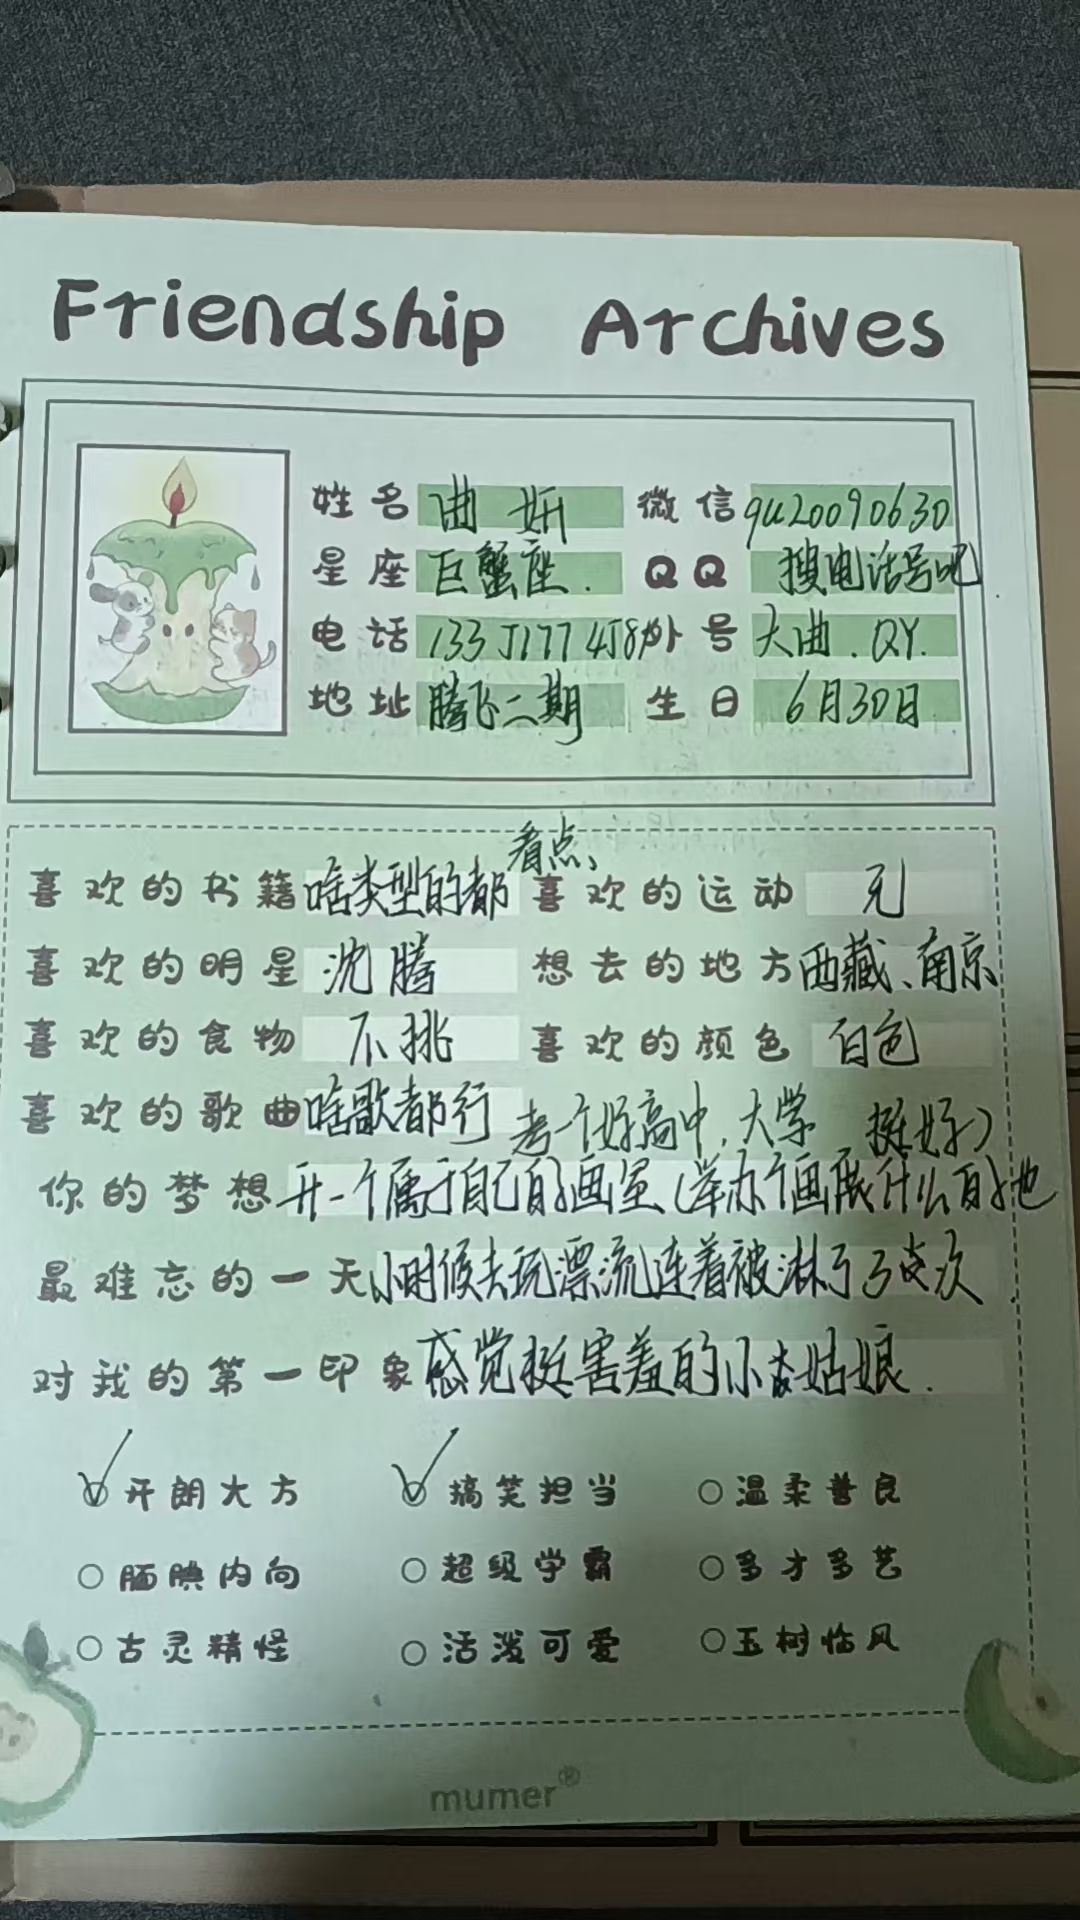 Friendship Archives
姓名 曲妍 微信 qu20090630
星座 巨蟹座. QQ 搜电话号吧
电话 133 5177 458 外号 大曲.QY.
地址 腾飞二期 生日 6月30日
看点、
喜欢的书籍 啥类型的都 喜欢的运动 无
喜欢的明星 沈腾 想去的地方 西藏、南京
喜欢的食物 不挑 喜欢的颜色 白色
喜欢的歌曲 啥歌都行
考一个好高中,大学 挺好)
你的梦想 开一个属于自己的画室(举办个画展什么的也
最难忘的一天 小时候去玩漂流连着被淋了3次
对我的第一印象 感觉挺害羞的小姑娘.
开朗大方 搞笑担当 温柔善良
腼腆内向 超级学霸 多才多艺
古灵精怪 活泼可爱 玉树临风
mumer®